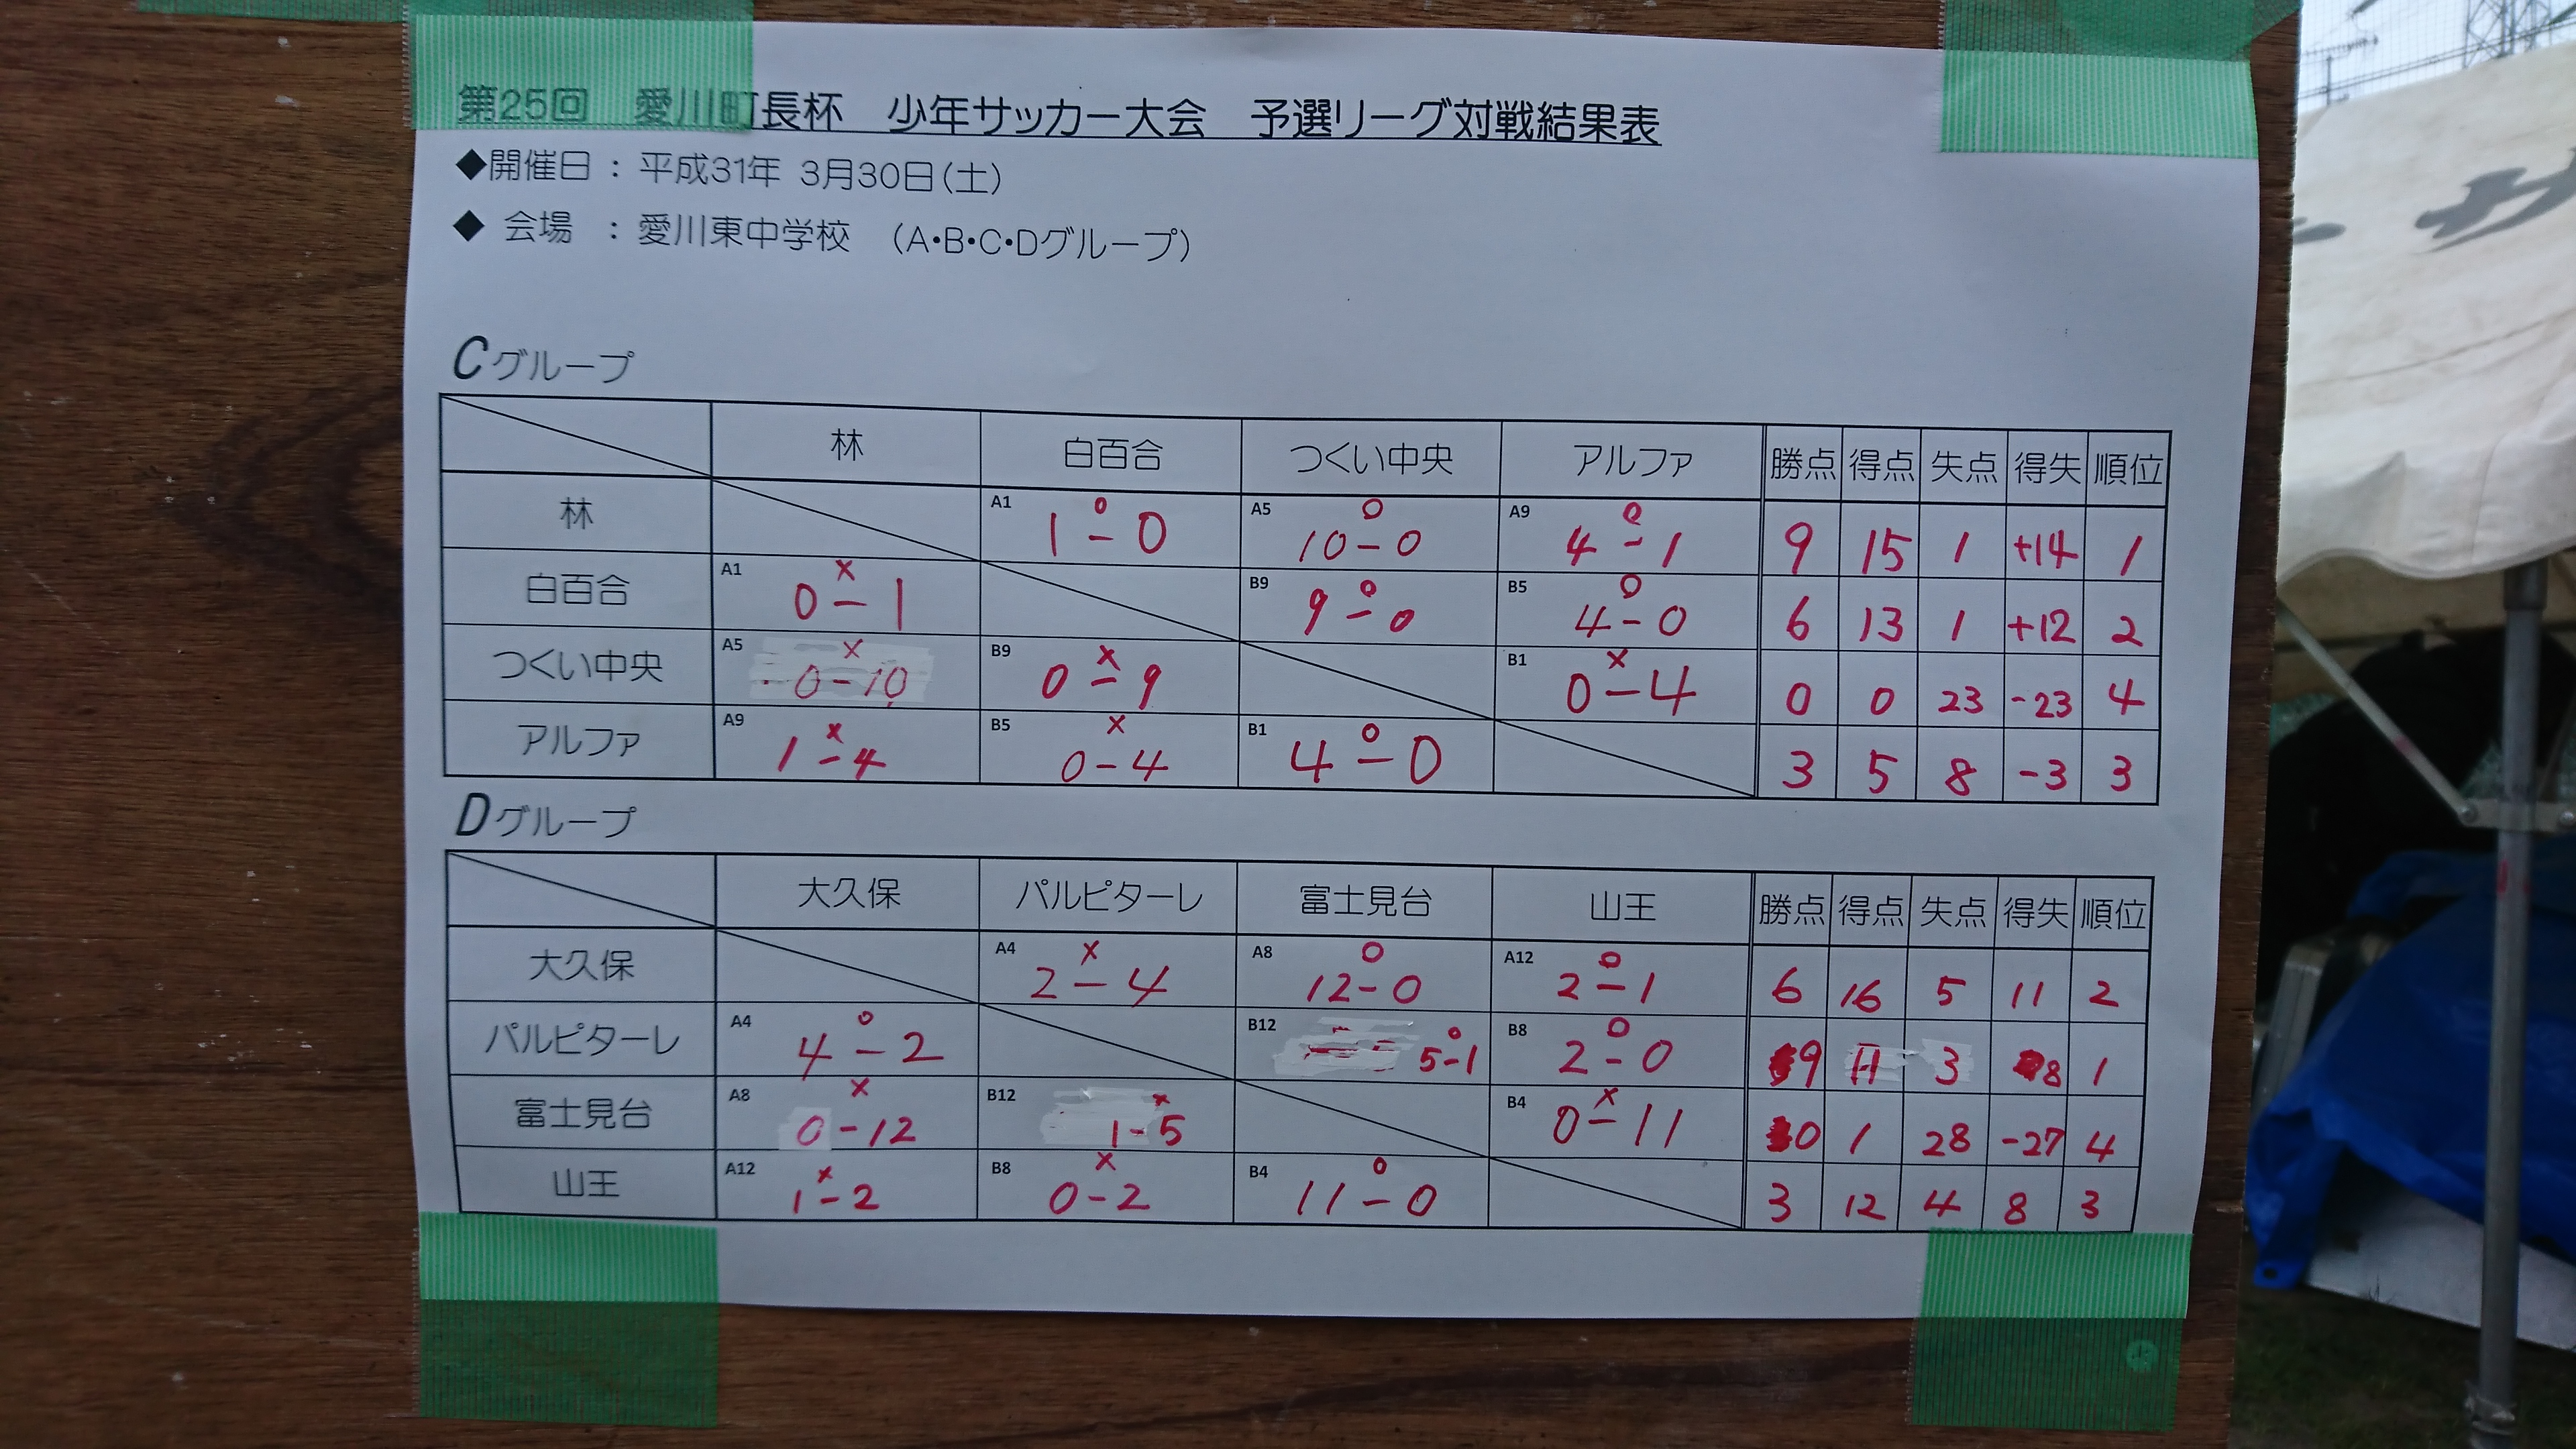 第25回 愛川町長杯 少年サッカー大会 予選リーグ対戦結果表
◆開催日 : 平成31年 3月30日(土)
◆ 会場 : 愛川東中学校 (A・B・C・Dグループ)
Cグループ
林 白百合 つくい中央 アルファ 勝点 得点 失点 得失 順位
林 A1 ○ 1-0 A5 ○ 10-0 A9 ○ 4-1 9 15 1 +14 1
白百合 A1 × 0-1 B9 ○ 9-0 B5 ○ 4-0 6 13 1 +12 2
つくい中央 A5 × 0-10 B9 × 0-9 B1 × 0-4 0 0 23 -23 4
アルファ A9 × 1-4 B5 × 0-4 B1 ○ 4-0 3 5 8 -3 3
Dグループ
大久保 パルピターレ 富士見台 山王 勝点 得点 失点 得失 順位
大久保 A4 × 2-4 A8 ○ 12-0 A12 ○ 2-1 6 16 5 11 2
パルピターレ A4 ○ 4-2 B12 ○ 5-1 B8 ○ 2-0 9 11 3 8 1
富士見台 A8 × 0-12 B12 × 1-5 B4 × 0-11 0 1 28 -27 4
山王 A12 × 1-2 B8 × 0-2 B4 ○ 11-0 3 12 4 8 3
サ